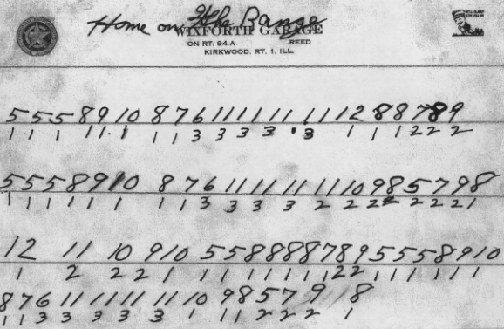 Home on The Range
WIXFORTH GARAGE
ON RT. 94-A REED
KIRKWOOD, RT. 1. ILL.
5 5 5 8 9 10 8 7 6 11 11 11 11 11 11 12 8 8 7 8 9
1 1 1 1 1 1 1 1 3 3 3 3 3 1 1 1 2 2 2
5 5 5 8 9 10 8 7 6 11 11 11 11 11 10 9 8 5 7 9 8
1 1 1 1 1 1 1 1 3 3 3 3 2 2 2 2 2 2 2 1
12 11 10 9 10 5 5 8 8 8 8 7 8 9 5 5 5 8 9 10
1 2 2 2 1 1 1 1 1 1 1 1 2 2 1 1 1 1 1 1
8 7 6 11 11 11 11 11 10 9 8 5 7 9 8
1 1 3 3 3 3 3 1 1 1 2 2 2 1